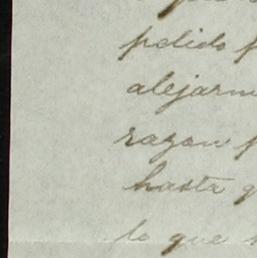 pedido p
alejarm
razon p
hasta q
lo que